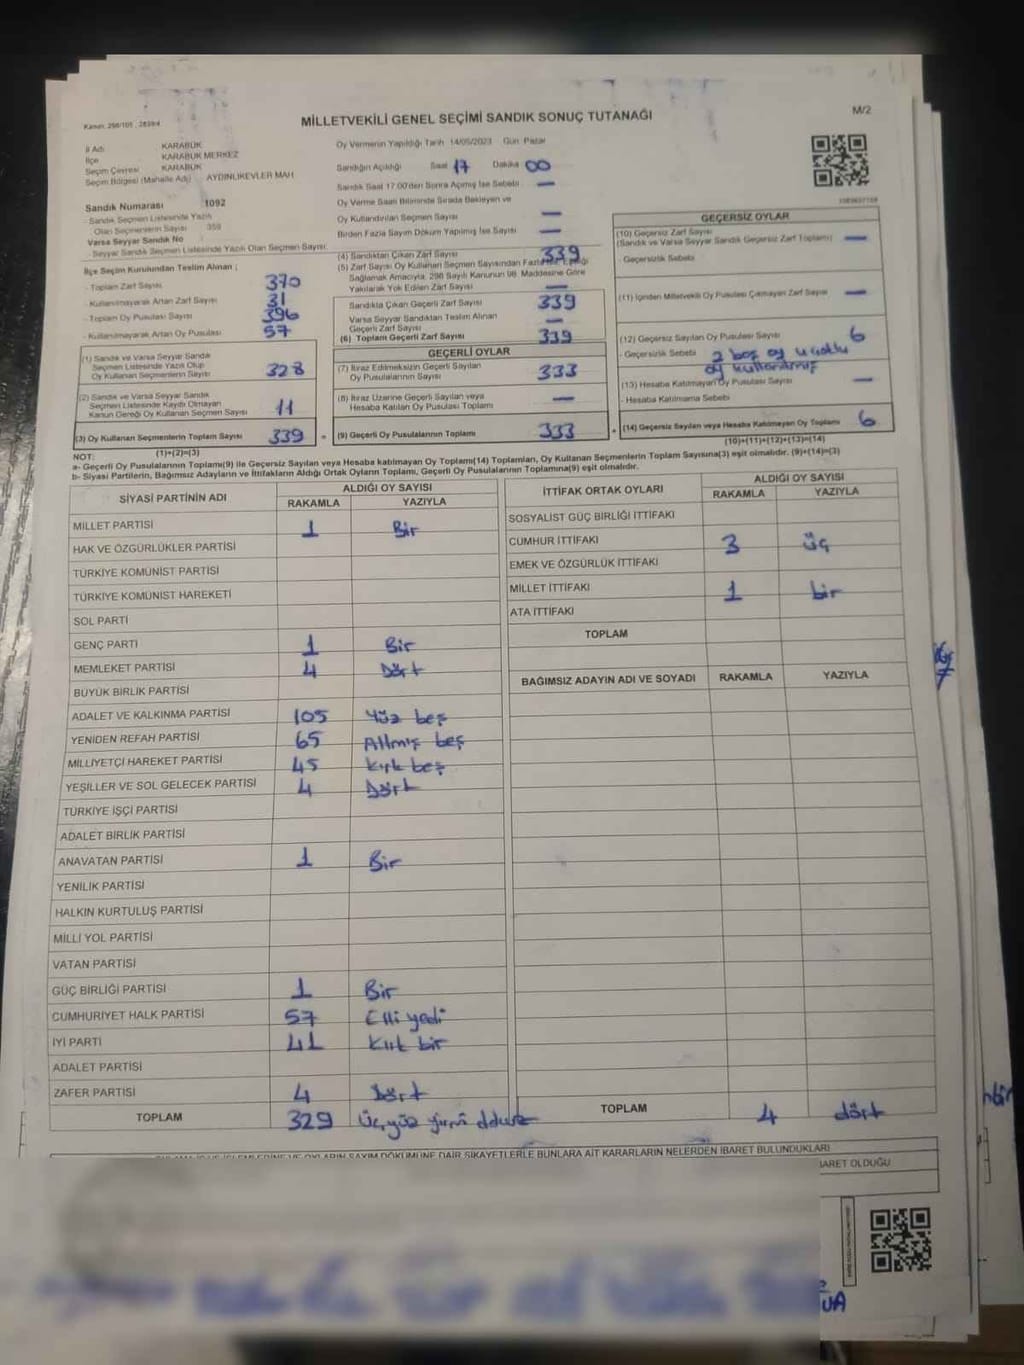 M/2
MİLLETVEKİLİ GENEL SEÇİMİ SANDIK SONUÇ TUTANAĞI
İl Adı KARABÜK
İlçe KARABÜK MERKEZ
Seçim Çevresi KARABÜK
Seçim Bölgesi (Mahalle Adı) AYDINLIKEVLER MAH
Sandık Numarası 1092
- Sandık Seçmen Listesinde Yazılı
Olan Seçmenlerin Sayısı 359
Varsa Seyyar Sandık No
- Seyyar Sandık Seçmen Listesinde Yazılı Olan Seçmen Sayısı:
İlçe Seçim Kurulundan Teslim Alınan ;
- Toplam Zarf Sayısı 370
- Kullanılmayarak Artan Zarf Sayısı 31
- Toplam Oy Pusulası Sayısı 396
- Kullanılmayarak Artan Oy Pusulası 57
(1) Sandık ve Varsa Seyyar Sandık
Seçmen Listesinde Yazılı Olup
Oy Kullanan Seçmenlerin Sayısı 328
(2) Sandık ve Varsa Seyyar Sandık
Seçmen Listesinde Kaydı Olmayan
Kanun Gereği Oy Kullanan Seçmen Sayısı 11
(3) Oy Kullanan Seçmenlerin Toplam Sayısı 339
(1)+(2)=(3)
Oy Vermenin Yapıldığı Tarih 14/05/2023 Gün Pazar
Sandığın Açıldığı Saat 17 Dakika 00
Sandık Saat 17:00'den Sonra Açımış İse Sebebi —
Oy Verme Saati Bitiminde Sırada Bekleyen ve
Oy Kullandırılan Seçmen Sayısı —
Birden Fazla Sayım Döküm Yapılmış İse Sayısı —
(4) Sandıktan Çıkan Zarf Sayısı 339
(5) Zarf Sayısı Oy Kullanan Seçmen Sayısından Fazla
Sağlamak Amacıyla, 298 Sayılı Kanunun 98. Maddesine Göre
Yakılarak Yok Edilen Zarf Sayısı —
Sandıkta Çıkan Geçerli Zarf Sayısı 339
Varsa Seyyar Sandıktan Teslim Alınan
Geçerli Zarf Sayısı —
(6) Toplam Geçerli Zarf Sayısı 339
GEÇERLİ OYLAR
(7) İtiraz Edilmeksizin Geçerli Sayılan
Oy Pusulalarının Sayısı 333
(8) İtiraz Üzerine Geçerli Sayılan veya
Hesaba Katılan Oy Pusulası Toplamı —
= (9) Geçerli Oy Pusulalarının Toplamı 333
GEÇERSİZ OYLAR
(10) Geçersiz Zarf Sayısı
(Sandık ve Varsa Seyyar Sandık Geçersiz Zarf Toplamı) —
- Geçersizlik Sebebi
(11) İçinden Milletvekili Oy Pusulası Çıkmayan Zarf Sayısı —
(12) Geçersiz Sayılan Oy Pusulası Sayısı 6
- Geçersizlik Sebebi 2 boş oy
oy kullanılmış
(13) Hesaba Katılmayan Oy Pusulası Sayısı —
- Hesaba Katılmama Sebebi
+ (14) Geçersiz Sayılan veya Hesaba Katılmayan Oy Toplamı 6
(10)+(11)+(12)+(13)=(14)
NOT:
a- Geçerli Oy Pusulalarının Toplamı(9) ile Geçersiz Sayılan veya Hesaba katılmayan Oy Toplamı(14) Toplamları, Oy Kullanan Seçmenlerin Toplam Sayısına(3) eşit olmalıdır. (9)+(14)=(3)
b- Siyasi Partilerin, Bağımsız Adayların ve İttifakların Aldığı Ortak Oyların Toplamı, Geçerli Oy Pusulalarının Toplamına(9) eşit olmalıdır.
SİYASİ PARTİNİN ADI ALDIĞI OY SAYISI
RAKAMLA YAZIYLA
MİLLET PARTİSİ 1 Bir
HAK VE ÖZGÜRLÜKLER PARTİSİ
TÜRKİYE KOMÜNİST PARTİSİ
TÜRKİYE KOMÜNİST HAREKETİ
SOL PARTİ
GENÇ PARTİ 1 Bir
MEMLEKET PARTİSİ 4 Dört
BÜYÜK BİRLİK PARTİSİ
ADALET VE KALKINMA PARTİSİ 105 Yüz beş
YENİDEN REFAH PARTİSİ 65 Altmış beş
MİLLİYETÇİ HAREKET PARTİSİ 45 Kırk beş
YEŞİLLER VE SOL GELECEK PARTİSİ 4 Dört
TÜRKİYE İŞÇİ PARTİSİ
ADALET BİRLİK PARTİSİ
ANAVATAN PARTİSİ 1 Bir
YENİLİK PARTİSİ
HALKIN KURTULUŞ PARTİSİ
MİLLİ YOL PARTİSİ
VATAN PARTİSİ
GÜÇ BİRLİĞİ PARTİSİ 1 Bir
CUMHURİYET HALK PARTİSİ 57 Elli yedi
İYİ PARTİ 41 Kırk bir
ADALET PARTİSİ
ZAFER PARTİSİ 4 Dört
TOPLAM 329 Üçyüz yirmi
İTTİFAK ORTAK OYLARI ALDIĞI OY SAYISI
RAKAMLA YAZIYLA
SOSYALİST GÜÇ BİRLİĞİ İTTİFAKI
CUMHUR İTTİFAKI 3 üç
EMEK VE ÖZGÜRLÜK İTTİFAKI
MİLLET İTTİFAKI 1 bir
ATA İTTİFAKI
TOPLAM
BAĞIMSIZ ADAYIN ADI VE SOYADI RAKAMLA YAZIYLA
TOPLAM 4 dört
OYLARIN SAYIM DÖKÜMÜNE DAİR ŞİKAYETLERLE BUNLARA AİT KARARLARIN NELERDEN İBARET BULUNDUKLARI
BARET OLDUĞU